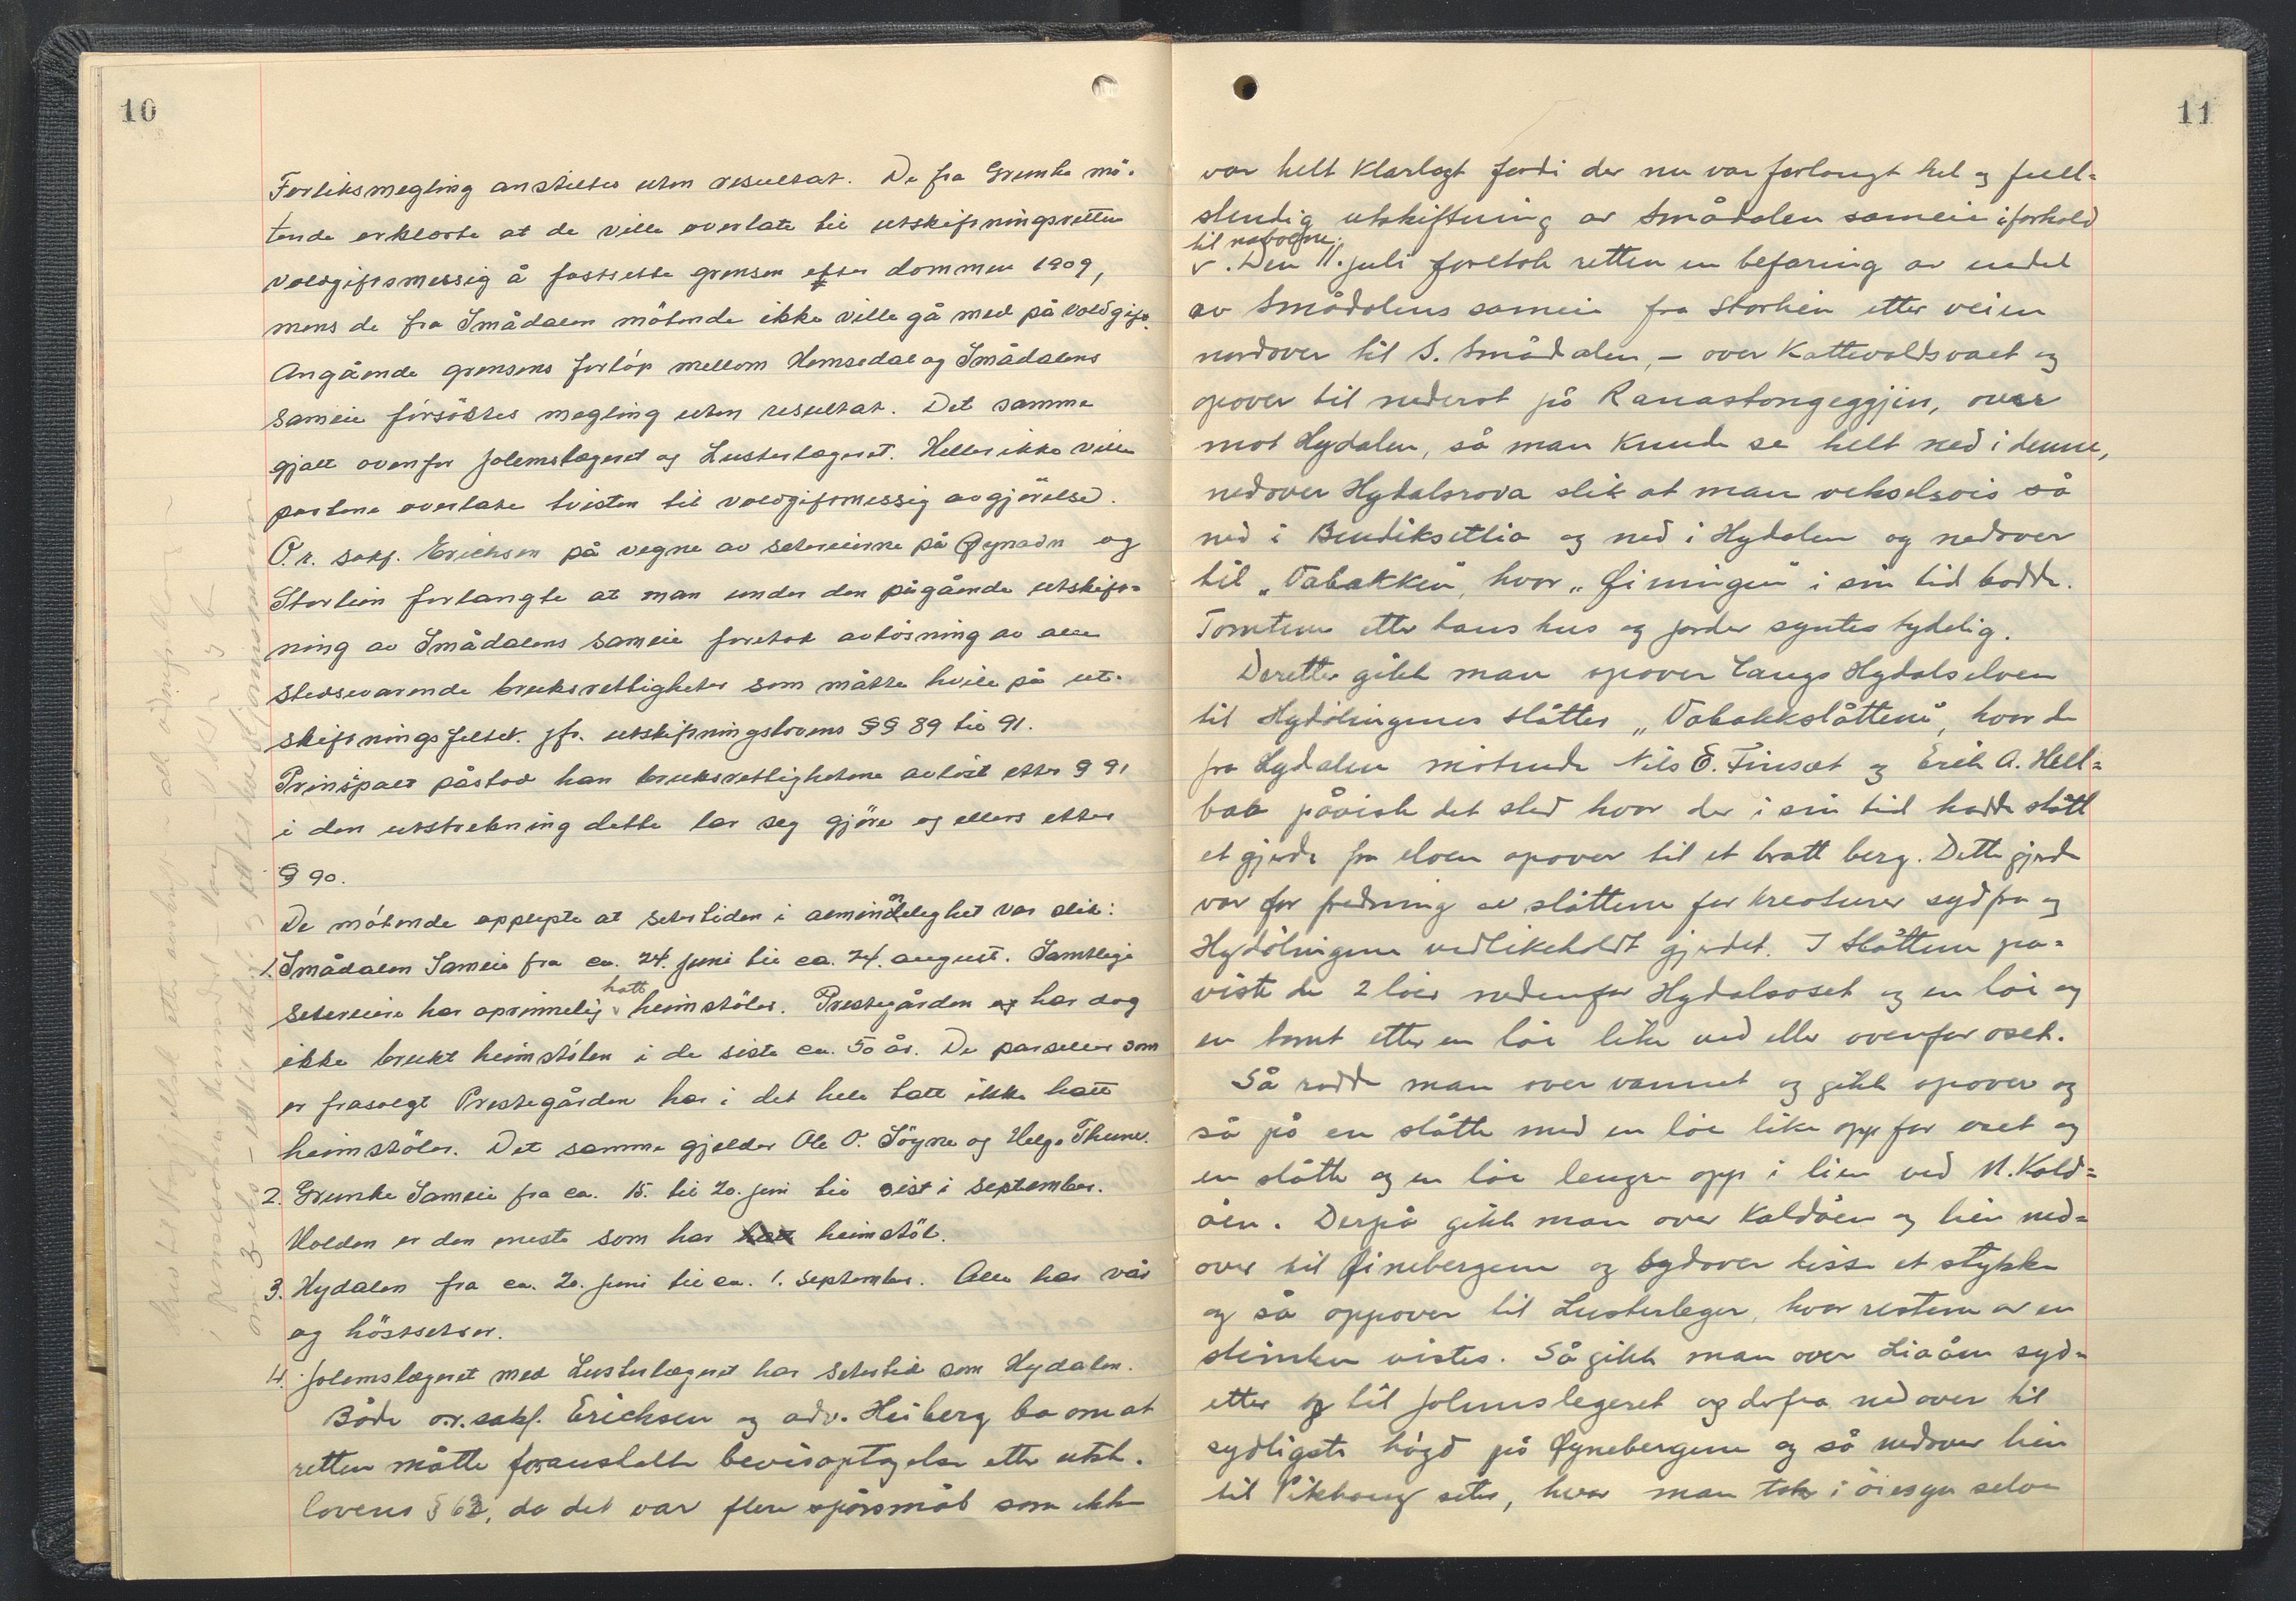 10
Forliksmegling anstiltes uten resultat. De fra Grunke mö-
tende erklærte at de ville overlate til utskiftningsretten
voldgiftsmessig å fastsette grensen efter dommen 1909,
mens de fra Smådalen mötende ikke ville gå med på voldgift.
Angående grensens forlöp mellem Hemsedal og Smådalens
sameie forsöktes megling uten resultat. Det samme
gjalt ovenfor Jolemslægeret og Lusterlægeret. Heller ikke ville
partene overlate tvisten til voldgiftsmessig avgjörelse.
O.r. sakf. Erichsen på vegne av setereierne på Øynadn og
Storlien forlangte at man under den pågående utskift-
ning av Smådalens sameie foretok avlösning av alle
stedsevarende bruksrettigheter som måtte hvile på ut-
skiftningsfeltet. jfr. utskiftningslovens §§ 89 til 91.
Prinsipalt påstod han bruksrettighetene avlöst etter § 91
i den utstrekning dette lar seg gjöre og ellers etter
§ 90.
De mötende opplyste at setertiden i almindelighet var slik:
1. Smådalen Sameie fra ca. 24. juni til ca. 24. august. Samtlige
hatt
setereiere har oprinnelig heimstöler. Prestegården har dog
ikke brukt heimstölen i de siste ca. 50 år. De parseller som
er frasolgt Prestegården har i det hele tatt ikke hatt
heimstöler. Det samme gjelder Ole O. Söyne og Helge Thune.
2. Grunke Sameie fra ca. 15. til 20. juni til sist i september.
Holden er den eneste som har hatt heimstöl.
3. Hydalen fra ca. 20. juni til ca. 1. september. Alle har vår
og höstsetrer.
4. Jolemslægeret med Lusterlægeret har setertid som Hydalen.
Både o.r.sakf. Erichsen og adv. Heiberg ba om at
retten måtte foranstalte bevisoptagelse etter utsk.
lovens § 62, da det var flere spörsmål som ikke
11
var helt klarlagt fordi der nu var forlangt hel og full-
stendig utskiftning av Smådalen sameie i forhold
til naboene.
v. Den 11. juli foretok retten en befaring av endel
av Smådalens sameie fra Storlien etter veien
nordover til S. Smådalen, - over Kattevoldsvaet og
opover til nederst på Ranastongeggjin, over
mot Hydalen, så man kunde se helt ned i denne,
nedover Hydalsrova slik at man vekselsvis så
ned i Bendiksetlia og ned i Hydalen og nedover
til „Vabakken", hvor „Øiningen" i sin tid bodde.
Tomtene etter hans hus og jorder syntes tydelig.
Deretter gikk man opover langs Hydalselven
til Hydölingenes slåtter „Vabakkslåttene", hvor de
fra Hydalen mötende Nils E. Finset og Erik A. Hell-
bak påviste det sted hvor der i sin tid hadde stått
et gjerde fra elven opover til et bratt berg. Dette gjerde
var for fredning av slåttene for kreaturer sydfra og
Hydölingene vedlikeholdt gjerdet. I slåttene på-
viste de 2 löer nedenfor Hydalsoset og en löe og
en tomt etter en löe like ved eller ovenfor oset.
Så rodde man over vannet og gikk opover og
så på en slåtte med en löe like opp for oset og
en slåtte og en löe lengre opp i lien ved N. Kald-
åen. Derpå gikk man over Kaldåen og lien ned-
over til Øinebergene og sydover disse et stykke
og så oppover til Lusterleger, hvor restene av en
steinbu vistes. Så gikk man over Liaåen syd-
etter til Jolemslegeret og derfra nedover til
sydligste högd på Øynebergene og så nedover lien
til Vikhaug seter, hvor man tok i öiesyn selve